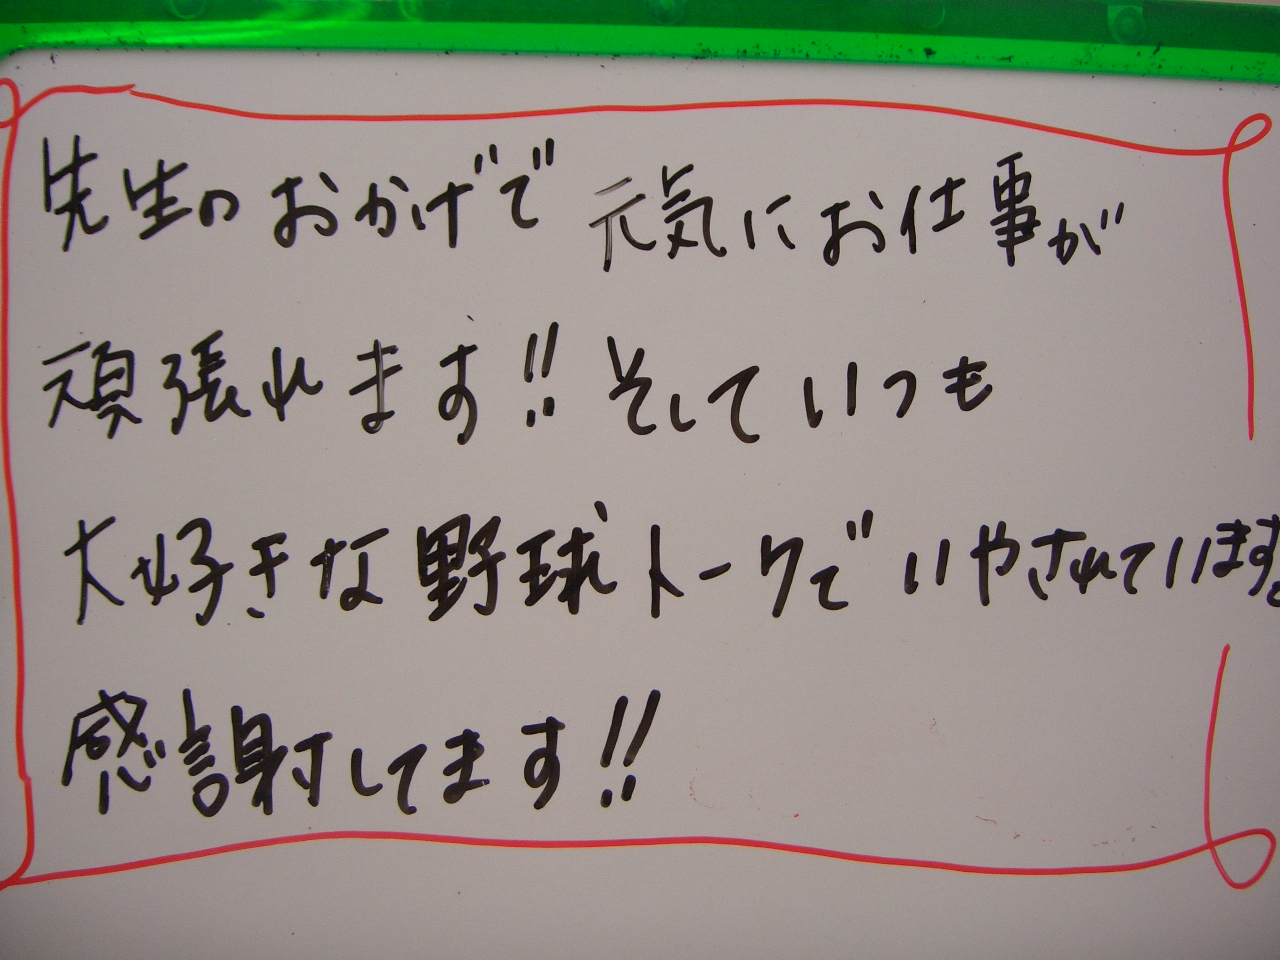 先生のおかげで 元気にお仕事が
頑張れます!! そしていつも
大好きな野球トークでいやされています。
感謝してます!!